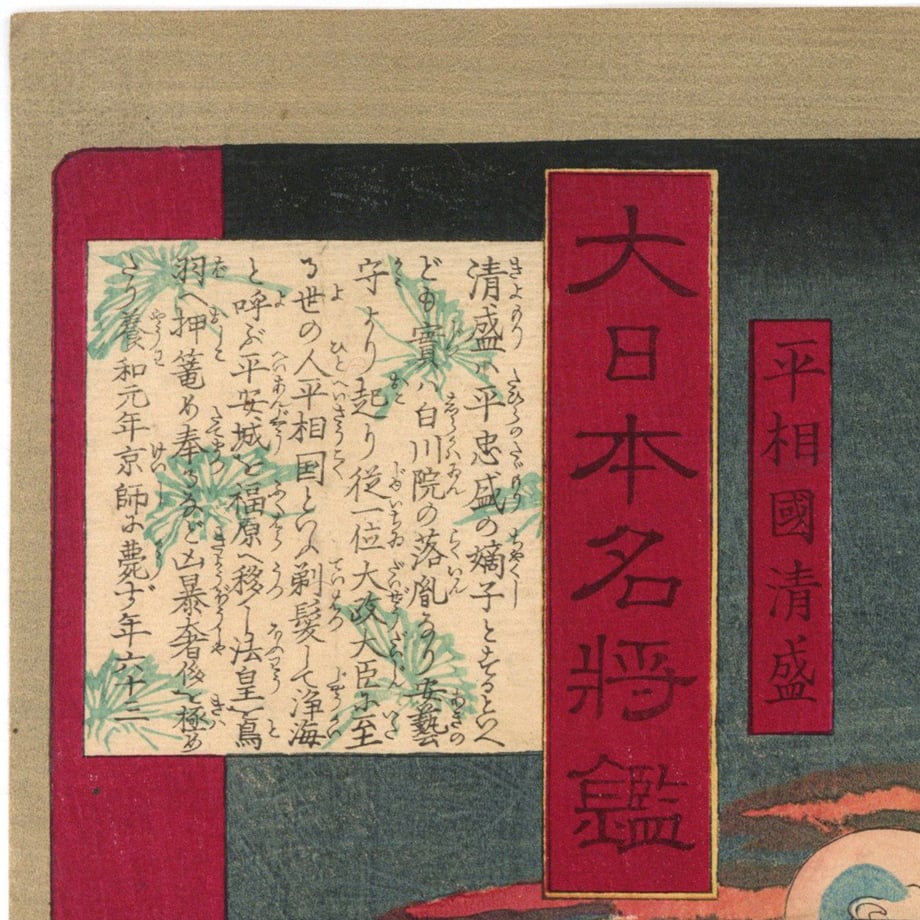 平相國清盛
大日本名将鑑
清盛ハ平忠盛の嫡子とするといへ
ども實ハ白川院の落胤なり安藝
守より起り従一位大政大臣に至
る世の人平相国といふ剃髪して浄海
と呼ぶ平安城を福原へ移し法皇を鳥
羽へ押篭め奉るなど凶暴奢侈を極め
たり養和元年京師に薨ず年六十三